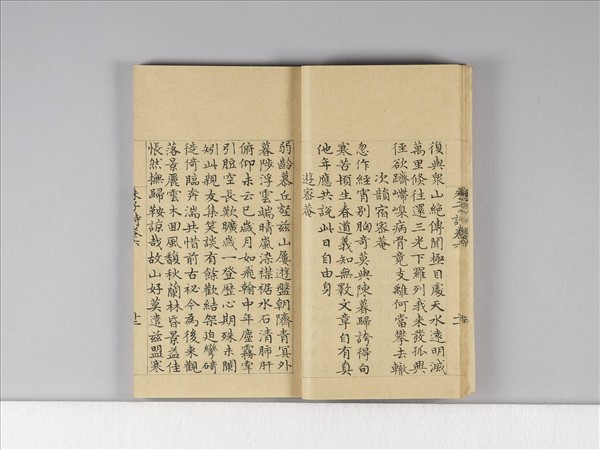 復與衆山絶傳聞極目處天水遠明滅
萬里倏往還三光下羅列我来發孤興
徑欲躋嵽嵲病骨竟支離何當攀去轍
次韻宿密菴
忽作經宵別胸奇莫與陳暮歸誇得句
寒苦頓生春道義知無斁文章自有真
他年應共説此日自由身
遊密菴
弱齡慕丘壑兹山屢遊盤朝隮青冥外
暮陟浮雲端晴嵐染襟裾水石清肺肝
俯仰未云已歲月如飛翰中年塵霧牽
引脰空長歎曠歲一登歷心期殊未闌
矧此親友集笑談有餘歡結架迫彎碕
徙倚臨奔湍共惜前古祕今為後來觀
落景麗雲木回風馥秋蘭林昏景益佳
悵然撫歸鞍諒哉故山好莫遣兹盟寒